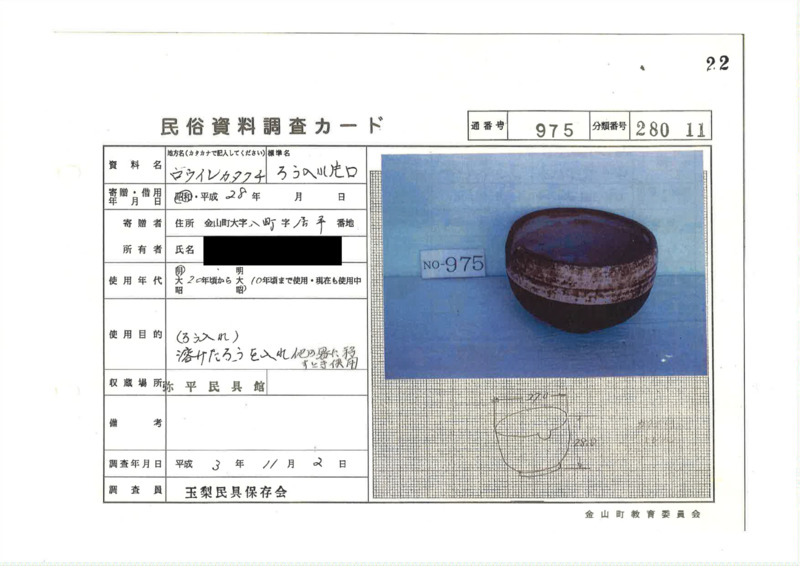 22
民俗資料調査カード
通番号 975 分類番号 280 11
資料名 地方名(カタカナで記入してください) ロウイレカタクチ 標準名 ろう入れ片口
寄贈・借用年月日 昭和・平成 28年 月 日
寄贈者 住所 金山町大字 八町 字 居平 番地
所有者 氏名
使用年代 明大昭 20年頃から 明大昭 10年頃まで使用・現在も使用中
使用目的 (ろう入れ)
溶けたろうを入れ他の器に移すとき使用
収蔵場所 弥平民具館
備考
調査年月日 平成 3 年 11 月 2 日
調査員 玉梨民具保存会
NO-975
27.0
28.0
金山町教育委員会